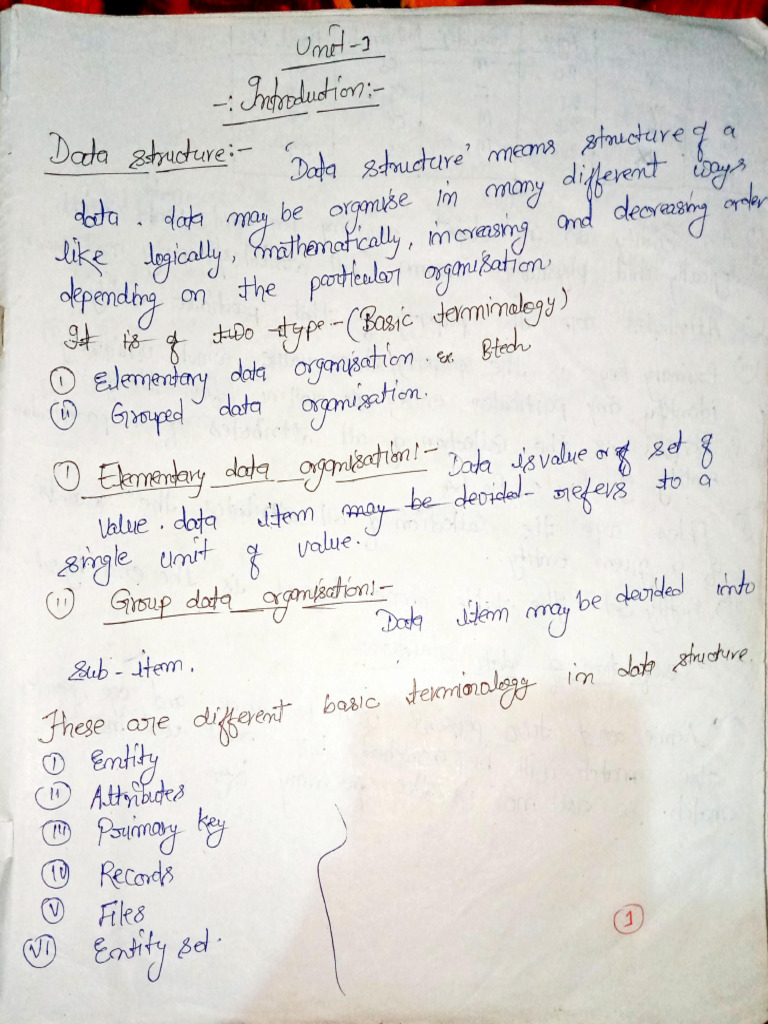 Unit-1
-: Introduction:-
Data structure:- 'Data structure' means structure of a
data. data may be organise in many different ways
like logically, mathematically, increasing and decreasing order
depending on the particular organisation.
It is of two type - (Basic terminology)
(i) Elementary data organisation. Ex. Btech
(ii) Grouped data organisation.
(i) Elementary data organisation:- Data is value or set of
value. data item may be devided refers to a
single unit of value.
(ii) Group data organisation:-
Data item may be devided into
sub-item.
These are different basic terminology in data structure.
(i) Entity
(ii) Attributes
(iii) Primary key
(iv) Records
(v) Files
(vi) Entity set.
(1)